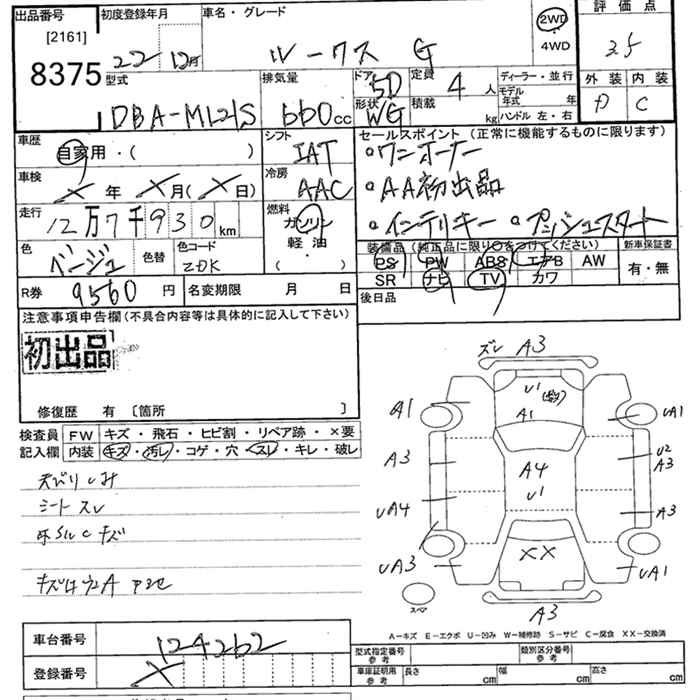 出品番号
[2161]
8375
初度登録年月
22 12月
車名・グレード
ルークス G
2WD
・
4WD
評価点
3.5
型式
DBA-ML21S
排気量
660cc
ドア
5D
形状
WG
定員
4人
積載
kg
ディーラー・並行
モデル年式 年
ハンドル 左・右
外装
D
内装
C
車歴
自家用・( )
車検
X年 X月(X日)
走行
12万7千930km
色
ベージュ
色替
色コード
ZDK
R券
9560円
名変期限 月 日
シフト
IAT
冷房
AAC
燃料
ガソリン
軽・油
( ・ )
セールスポイント(正常に機能するものに限ります)
・ワンオーナー
・AA初出品
・インテリキー ・プッシュスタート
装備品(純正品に限り○をつけてください)
PS PW ABS エアB AW
SR ナビ TV カワ
新車保証書
有・無
後日品
注意事項申告欄(不具合内容等は具体的に記入して下さい)
初出品
修復歴 有 〔箇所 〕
検査員記入欄
FW キズ・飛石・ヒビ割・リペア跡・×要
内装 キズ・汚レ・コゲ・穴・スレ・キレ・破レ
天バリシミ
シートスレ
キズ
ズレ A3
U1
A1
A1
UA1
A3
U2
A3
A4
U1
UA4
A3
XX
UA3
UA1
スペア
A3
A-キズ E-エクボ U-凹み W-補修跡 S-サビ C-腐食 XX-交換済
車台番号
124262
登録番号
X
型式指定番号
参考
類別区分番号
参考
車庫証明用
参考
長さ cm
幅 cm
高さ cm